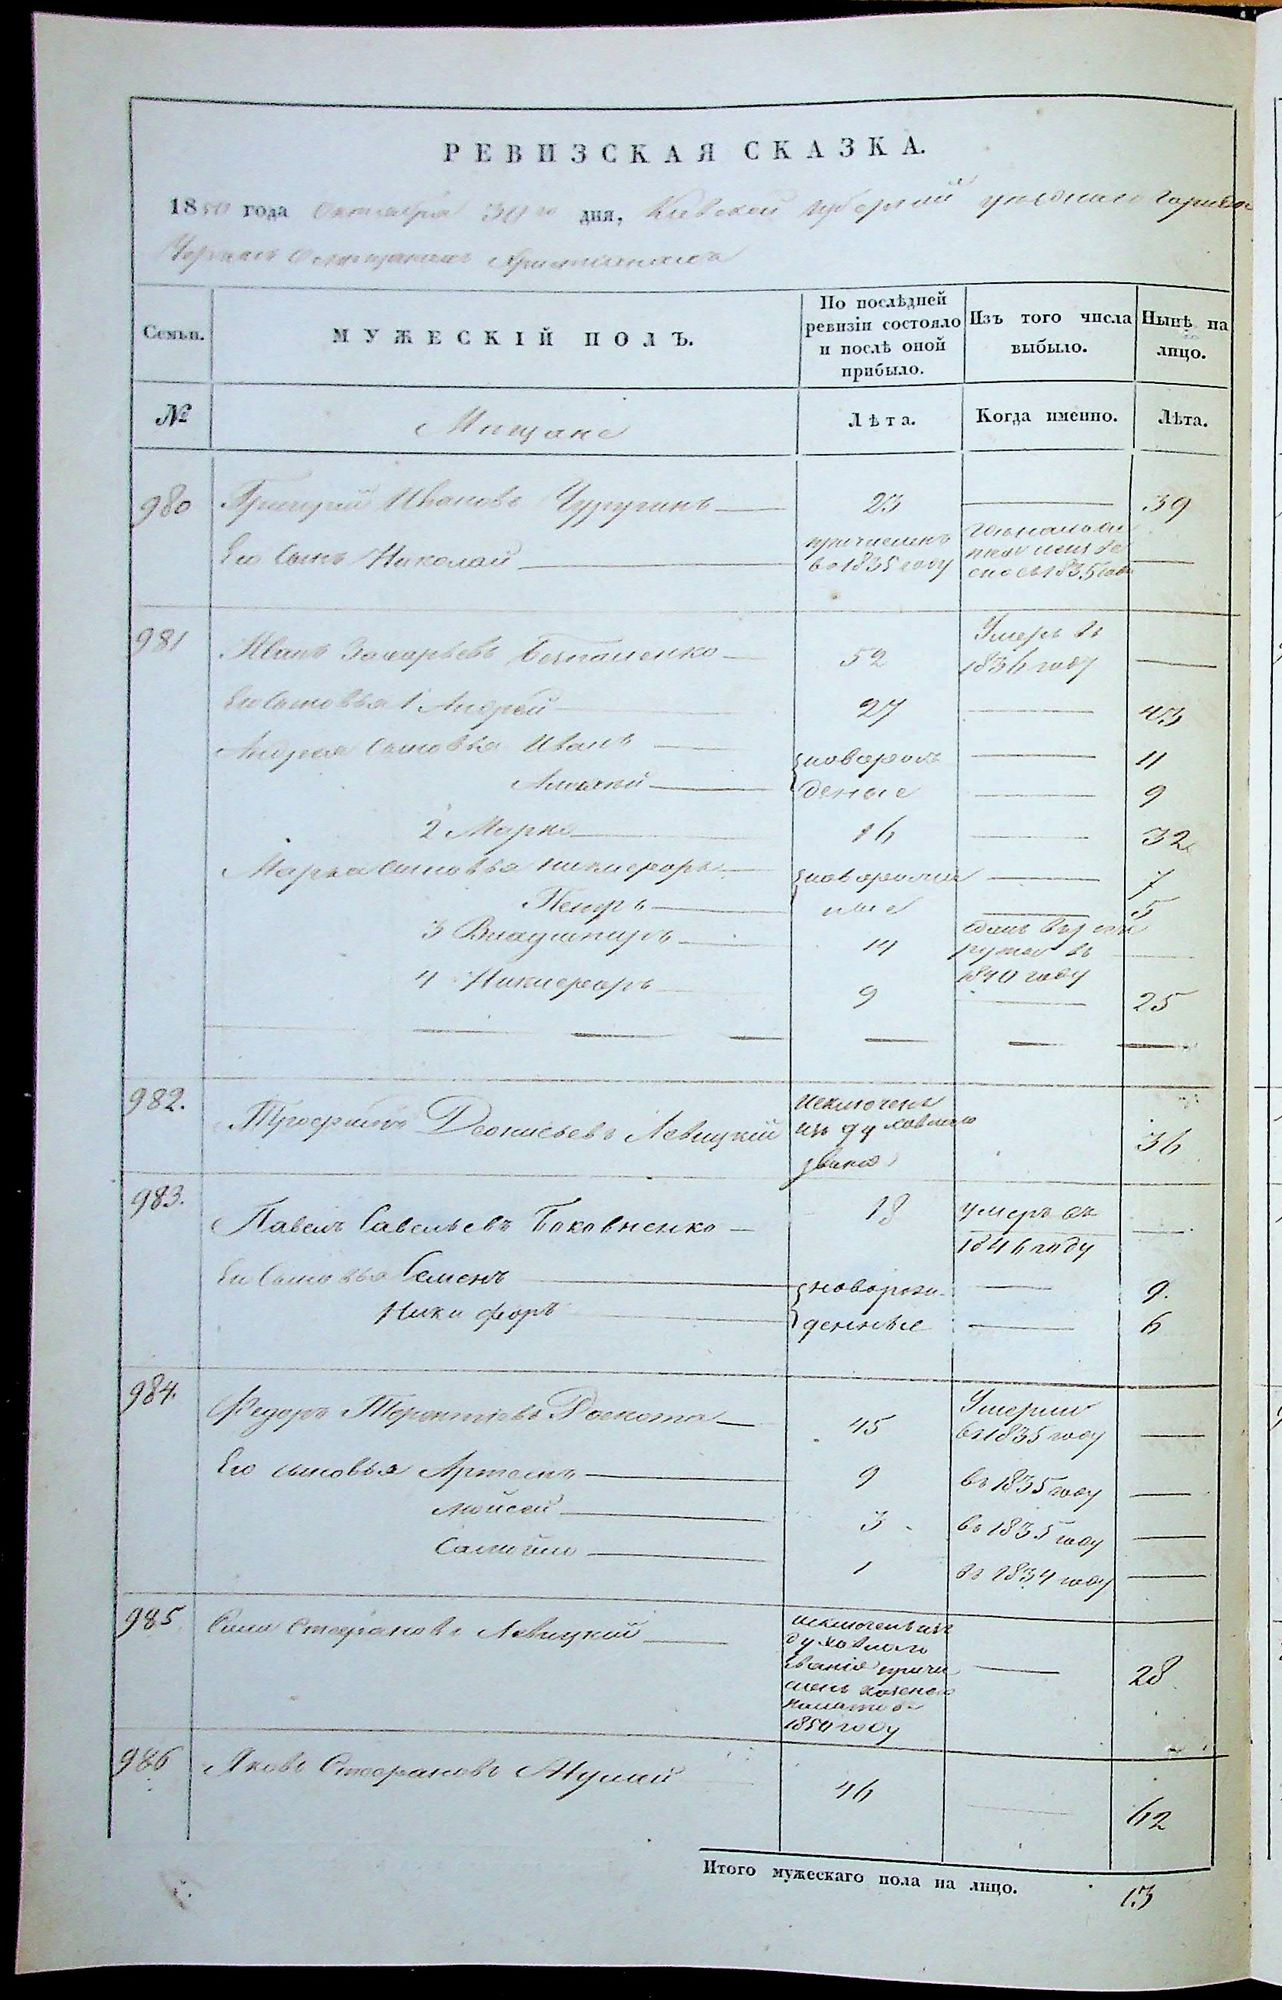 РЕВИЗСКАЯ СКАЗКА.
1850 года Октября 30го дня, Киевской губернии уезднаго города
Семьи.
МУЖЕСКІЙ ПОЛЪ.
По послѣдней ревизіи состояло и послѣ оной прибыло.
Изъ того числа выбыло.
Нынѣ на лицо.
№
Мищане
Лѣта.
Когда именно.
Лѣта.
980 Григорий Ивановъ 23 39
Его Сынъ Николай причисленъ въ 1835 году 1835
981 Иванъ Захарьевъ 52 Умеръ въ 1836 году
Его Сыновья 1 Андрей 27 43
Андрея Сыновья Иванъ новорож 11
Алексей деные 9
2 Марко 16 32
Марка Сыновья Никифоръ новорожден 7
Петръ ные 5
3 Владимиръ 14 въ рекруты въ 1840 году
4 Никифоръ 9 25
982. Трофимъ Деонисьевъ Левицкий исключенъ изъ духовнаго звания 36
983. Павелъ Савельевъ Боковненко 18 умеръ въ 1846 году
Его Сыновья Семенъ новорож 9.
Никифоръ денные 6
984. Федоръ Терентіевъ 45 Умерли въ 1835 году
Его сыновья Артемъ 9 въ 1835 году
Мойсей 3 въ 1835 году
Самойло 1 въ 1834 году
985 Стефановъ Левицкий исключенъ изъ духовнаго званія причисленъ казеной палатой въ 1850 году 28
986 Яковъ Стефановъ 46 62
Итого мужескаго пола на лицо. 13